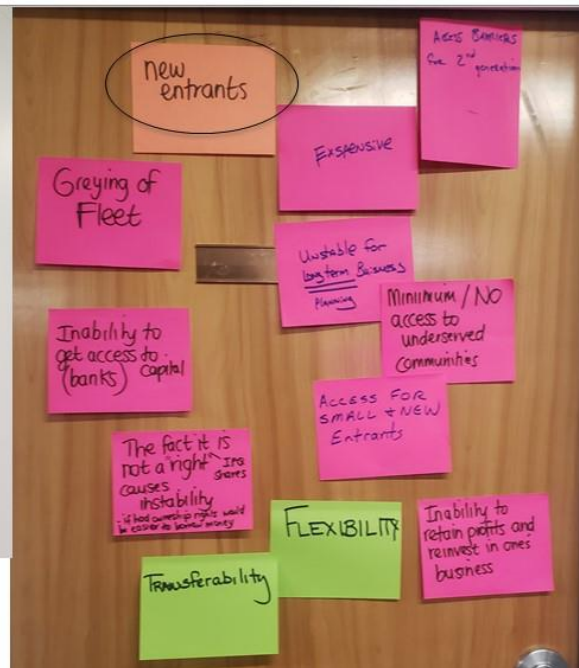 new
entrants
Access Barriers
for 2nd generation
EXSPENSIVE
Greying of
Fleet
Unstable for
long term Buisness
Planning
Minimum / NO
access to
underserved
communities
Inability to
get access to
(banks) capital
ACCESS FOR
SMALL + NEW
Entrants
The fact it is
not a "right" IFQ
shares
causes
instability
- if had ownership rights would
be easier to borrow money
FLEXIBILITY
Inability to
retain profits and
reinvest in one's
business
TRANSferability